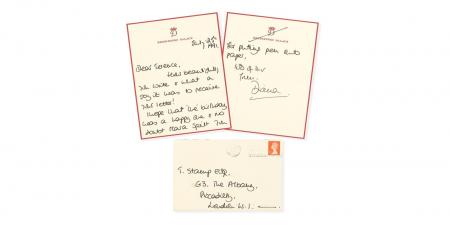 KENSINGTON PALACE
1991.
Dear Terence,
How beautifully
you write & what a
joy it was to receive
your letter!
I hope that 'the' birthday
was a happy one & no
doubt Mara spoilt you
KENSINGTON PALACE
For putting pen onto
paper,
Lots of love
from
Diana
T. Stamp Esq.
G3, The Albany,
Piccadilly,
London W.1.